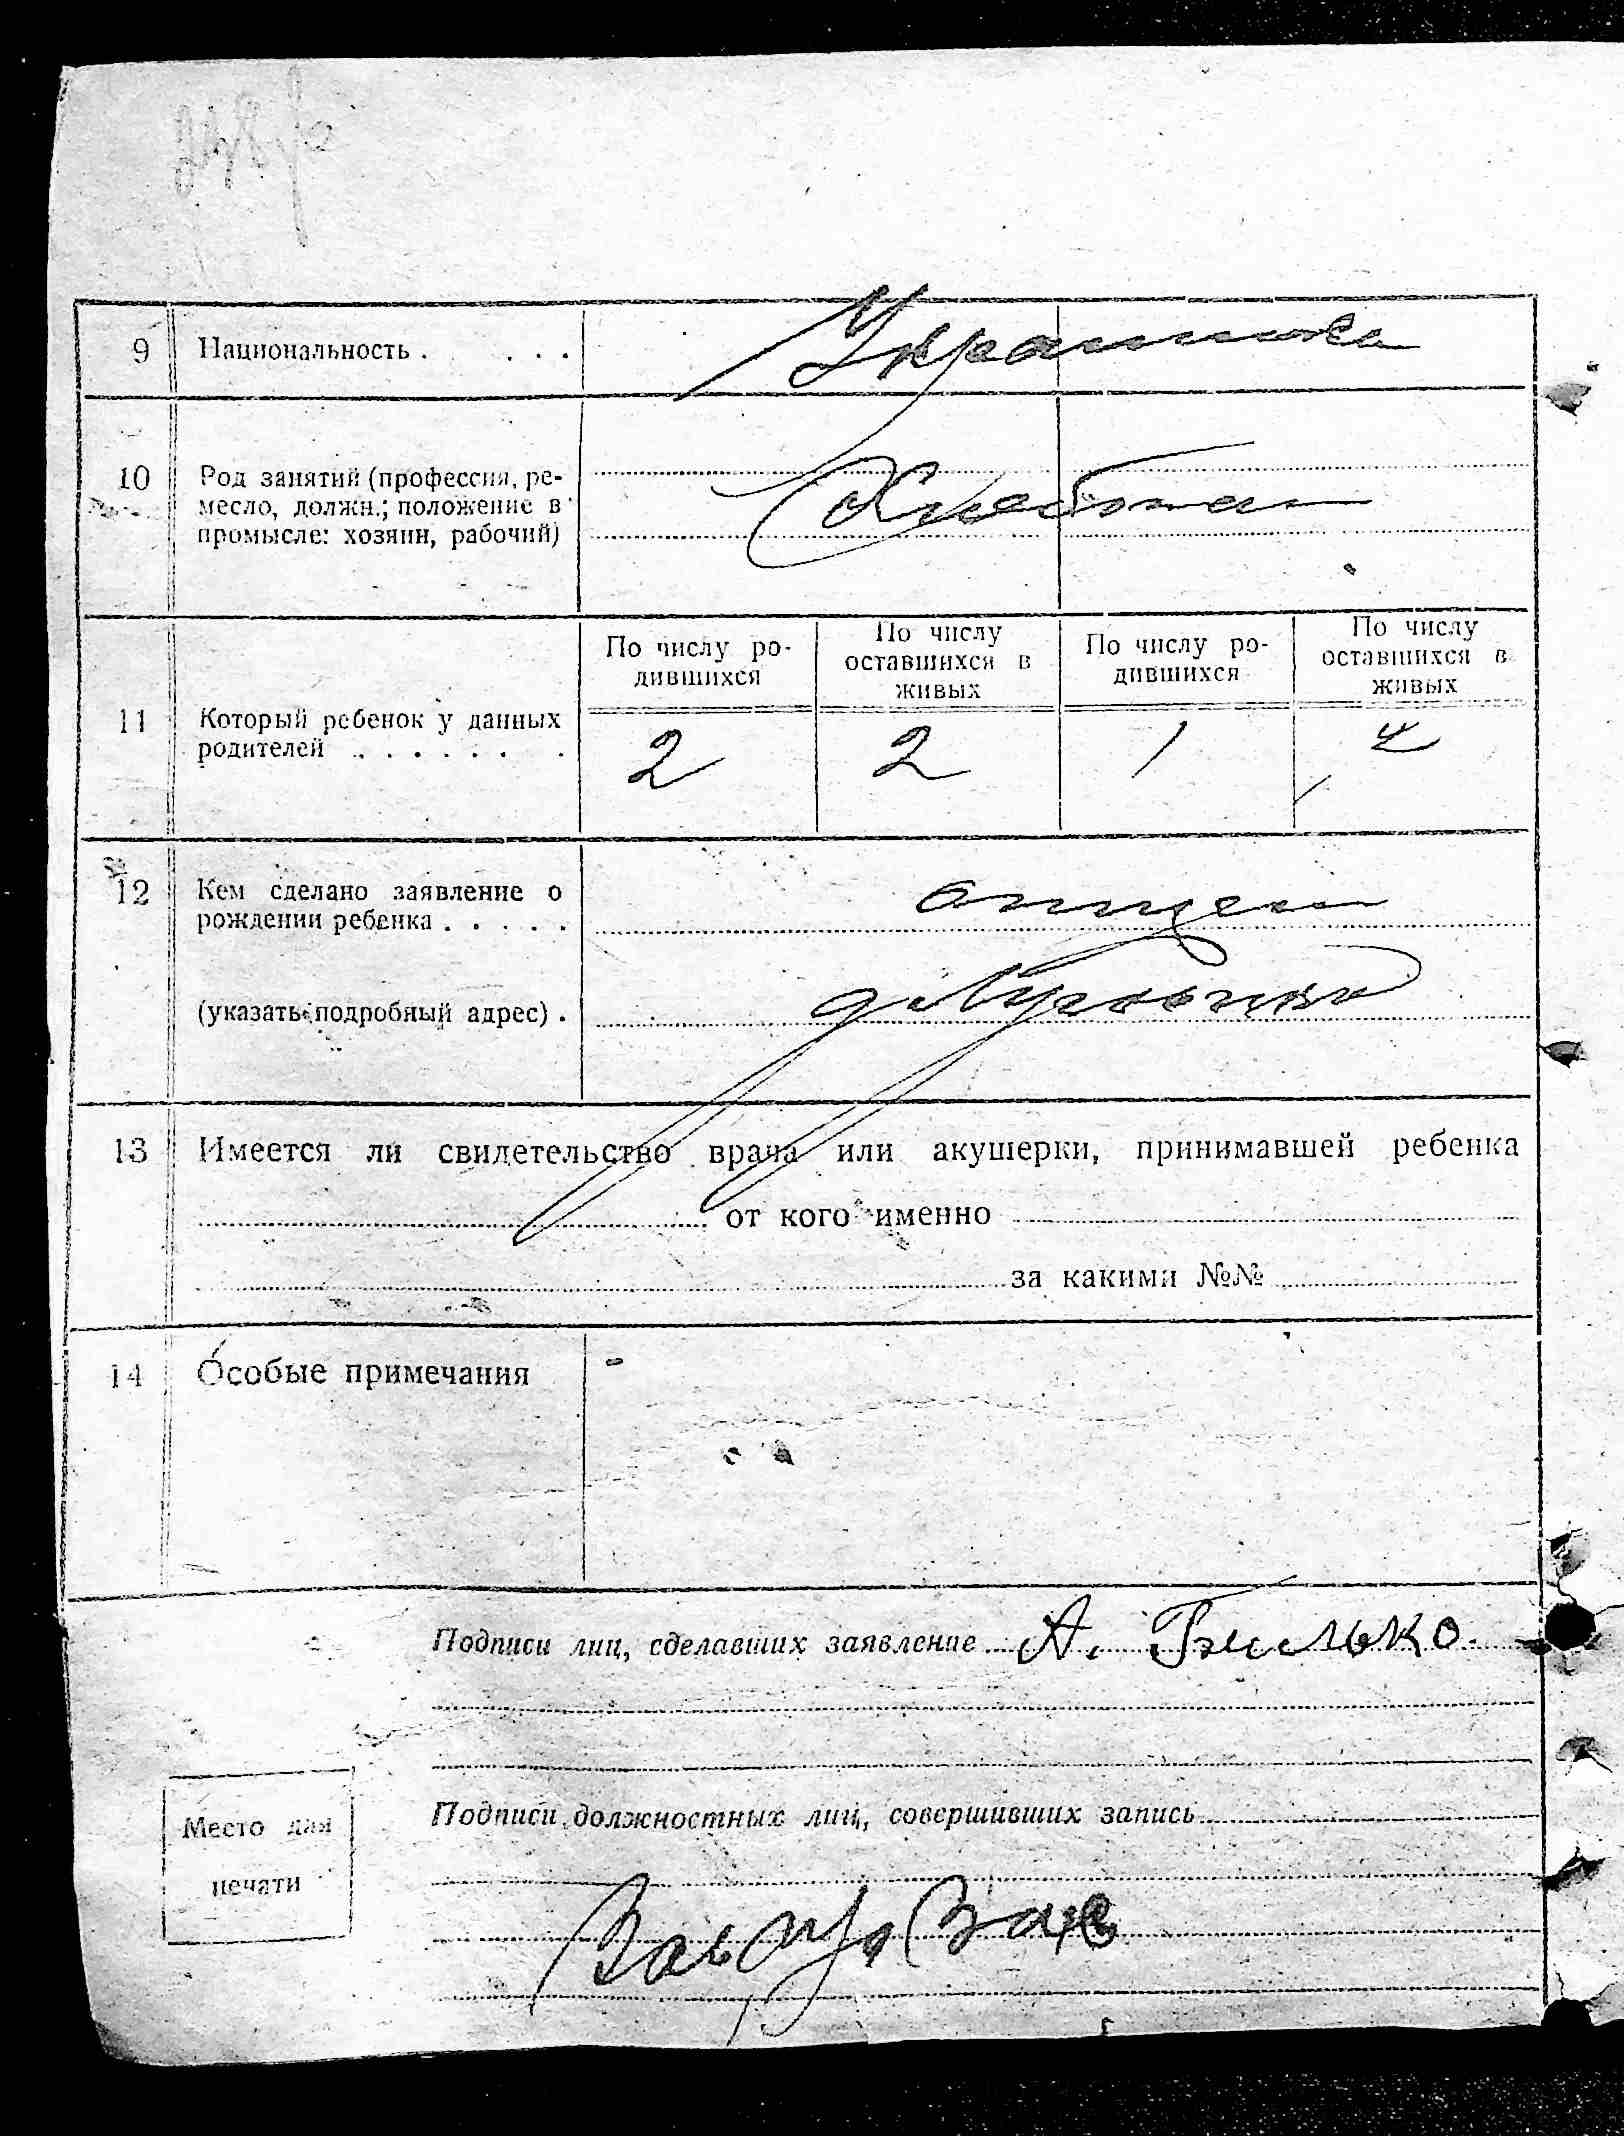 9 Национальность . . . . Украинка
10 Род занятий (профессия, ре-
месло, должн.; положение в
промысле: хозяин, рабочий)
По числу ро-
дившихся
По числу
оставшихся в
живых
По числу ро-
дившихся
По числу
оставшихся в
живых
11 Который ребенок у данных
родителей . . . . . . .
2 2 1
12 Кем сделано заявление о
рождении ребенка . . . . . отцем
(указать подробный адрес) .
13 Имеется ли свидетельство врача или акушерки, принимавшей ребенка
от кого именно
за какими №№
14 Особые примечания -
Подписи лиц, сделавших заявление А. Билько.
Подписи должностных лиц, совершивших запись
Место для
печати